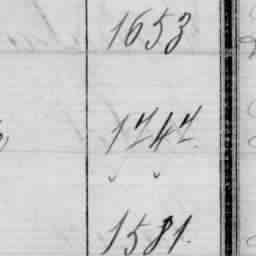 1653
1747.
1581.